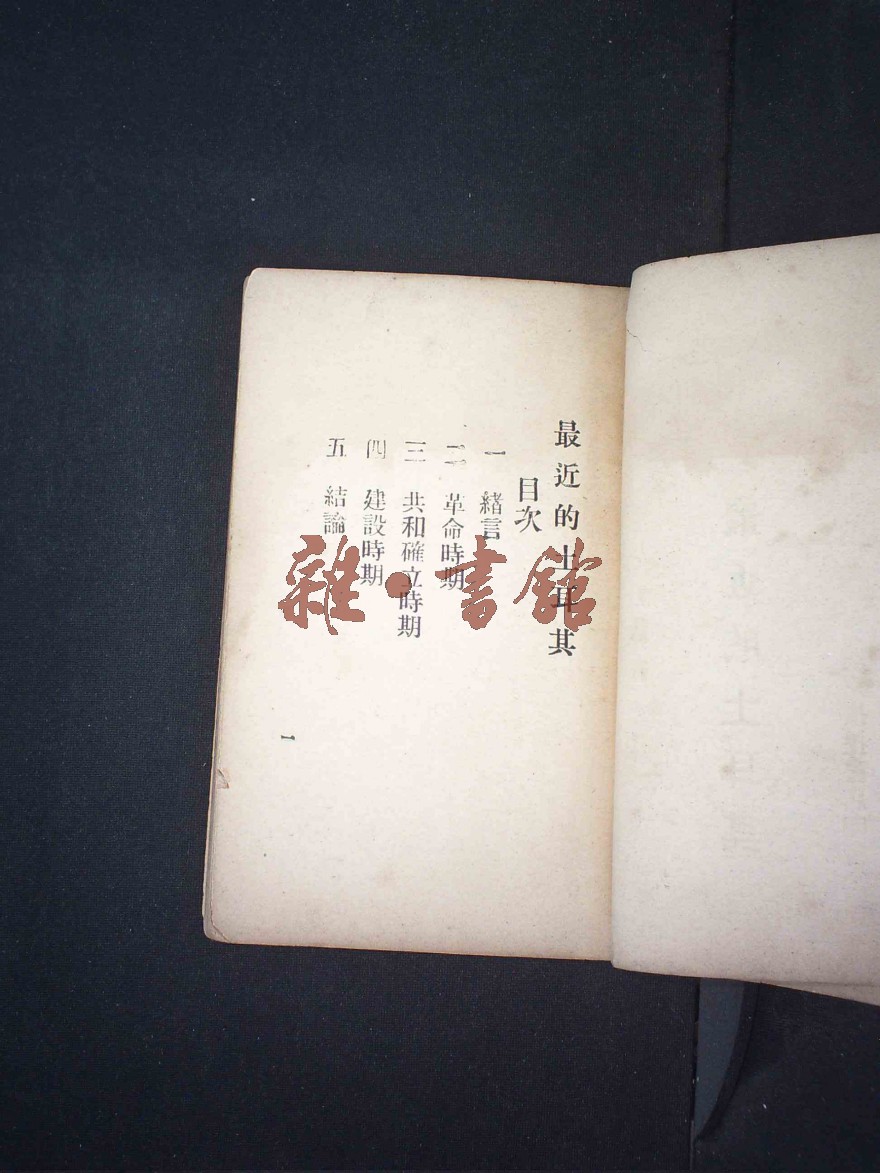 最近的土耳其
目次
一 緒言
二 革命時期
三 共和確立時期
四 建設時期
五 結論
一
雜·書館